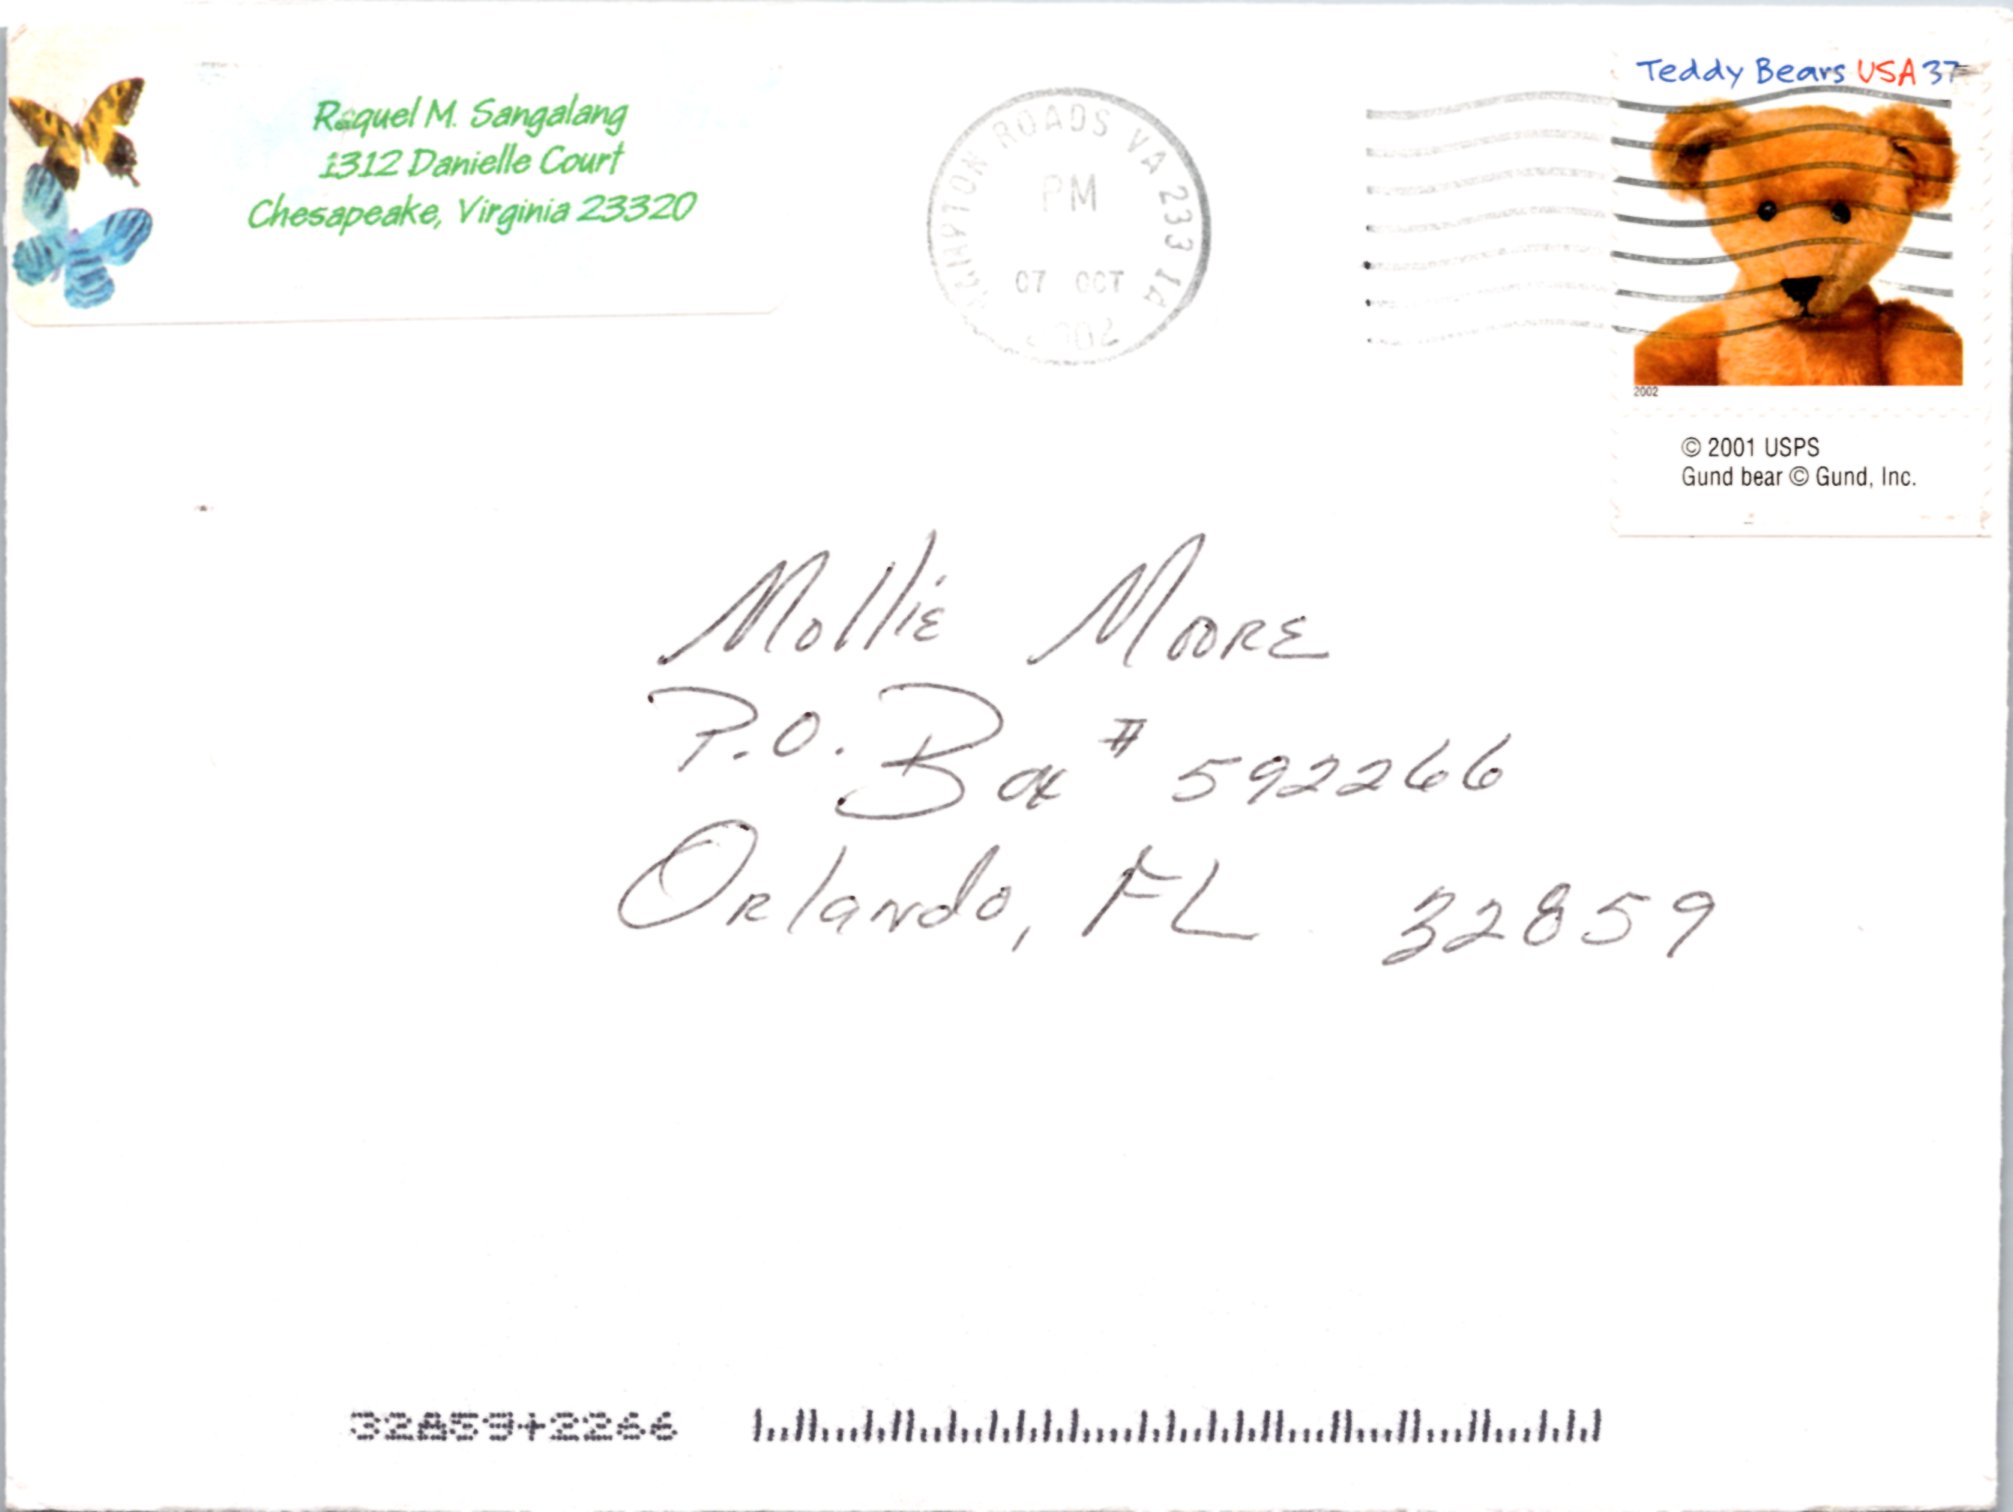 Raquel M. Sangalang
1312 Danielle Court
Chesapeake, Virginia 23320
HAMPTON ROADS VA 233 1A
PM
07 OCT
2002
Teddy Bears USA 37
2002
© 2001 USPS
Gund bear © Gund, Inc.
Mollie Moore
P.O. Box # 592266
Orlando, FL 32859
32859+2266